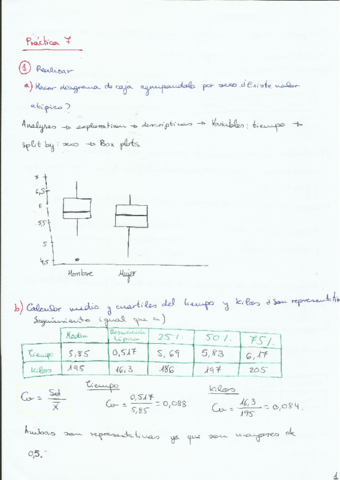 Práctica 7
1 Realizar
a) Hacer diagrama de caja agrupandolo por sexo ¿Existe valor
atípico?
Analyses → exploration → descriptives → Variables: tiempo →
split by: sexo → Box plots
6,5
6
5,5
5
4,5
Hombre Mujer
b) Calcular media y cuartiles del tiempo y kilos ¿son representativos
Seguimiento igual que a)
Media Desviación típica 25% 50% 75%
Tiempo 5,85 0,517 5,69 5,83 6,17
Kilos 195 16,3 186 197 205
Tiempo Kilos
Cv = Sd / x̄ Cv = 0,517 / 5,85 = 0,088 Cv = 16,3 / 195 = 0,084
Ambas son representativas ya que son mayores de
0,5.
1